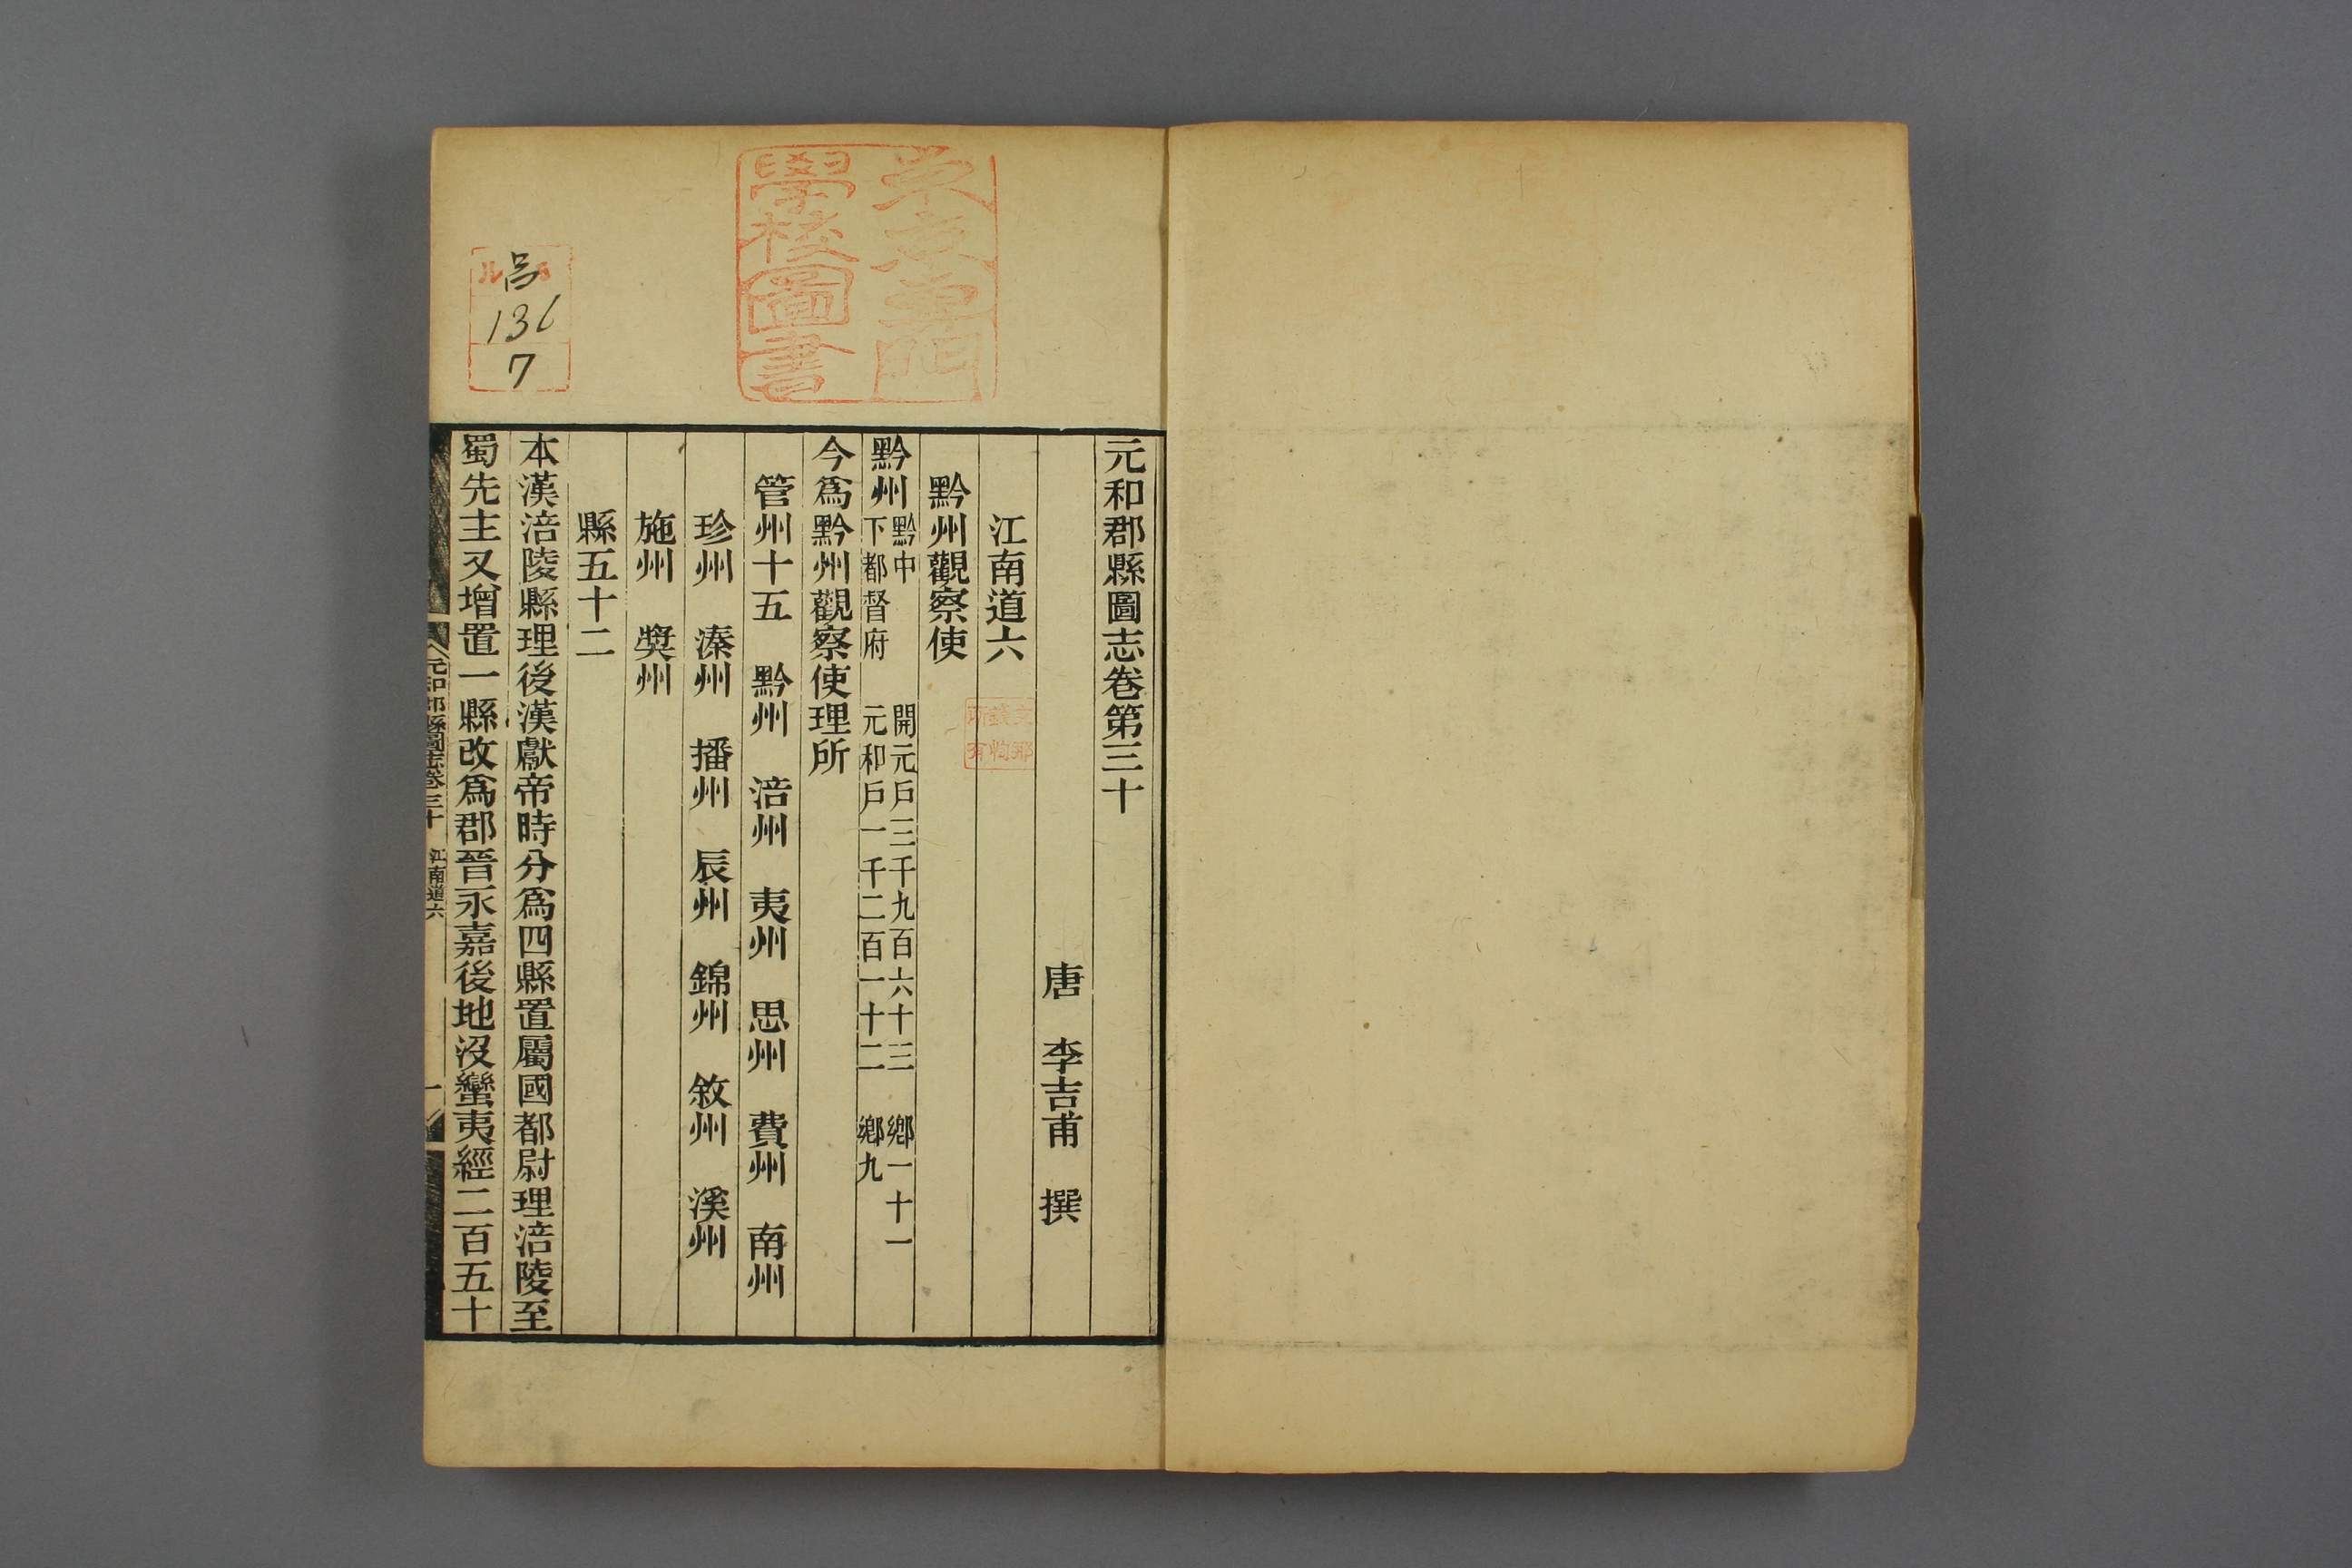 元和郡縣圖志卷第三十
唐　李吉甫　撰
江南道六
黔州觀察使
黔州黔中下都督府　開元戶三千九百六十三　鄉一十一　元和戶一千二百一十二　鄉九
今爲黔州觀察使理所
管州十五　黔州　涪州　夷州　思州　費州　南州
珍州　溱州　播州　辰州　錦州　敘州　溪州
施州　獎州
縣五十二
本漢涪陵縣理後漢獻帝時分爲四縣置屬國都尉理涪陵至
蜀先主又增置一縣改爲郡晉永嘉後地沒蠻夷經二百五十
元和郡縣圖志卷三十　江南道六　一
學校圖書
呂
136
7